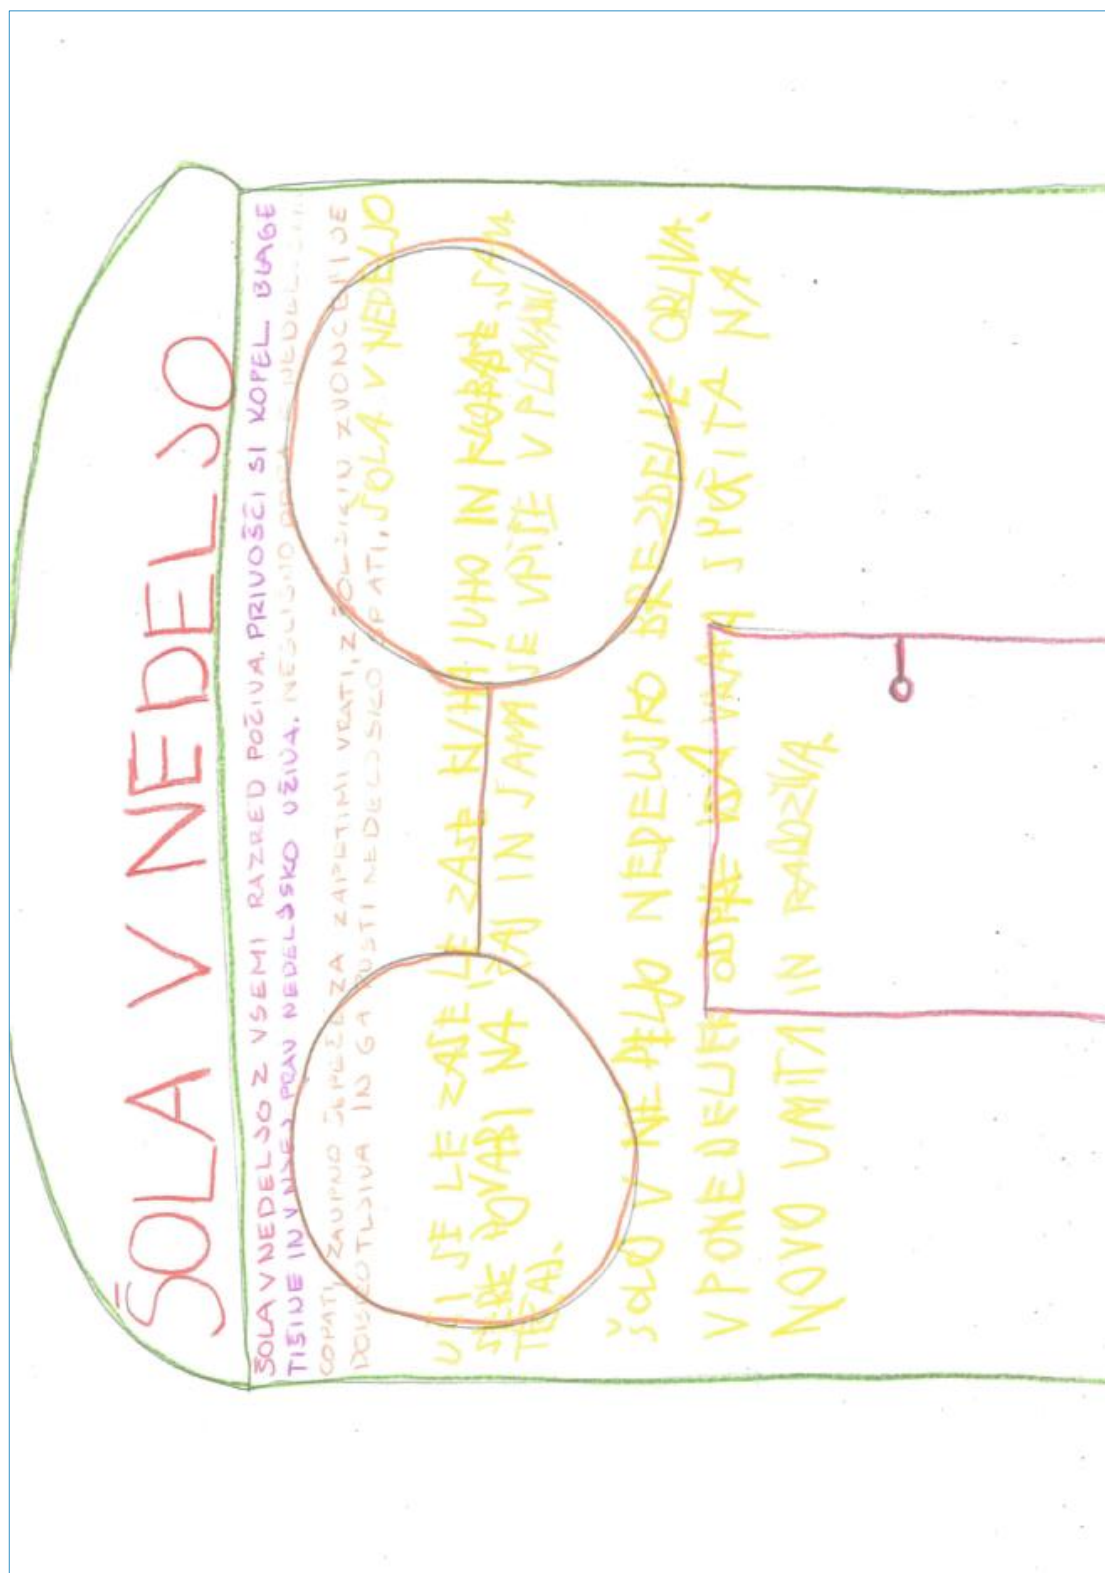 ŠOLA V NEDELJO
ŠOLA V NEDELJO Z VSEMI RAZRED POČIVA. PRIVOŠČI SI KOPEL BLAGE
TIŠINE IN V NJEJ PRAV NEDELJSKO UŽIVA. NESLIŠNO
COPATI, ZAUPNO ŠEPEČE ZA ZAPRTIMI VRATI, Z ZVONC DRIJE
IN GA PUSTI NEDELJSKO SPATI, ŠOLA V NEDELJO
UČI SE LE ZASE, LE ZASE KUHA JUHO IN SAMA
SEBE POVABI NA ČAJ IN SAMA SE VPIŠE V PLAVALNI
TEČAJ.
ŠOLO V NEDELJO NEDELJSKO BREZDELJE OBLIVA.
V PONEDELJEK ODPRE VRATA SPOČITA NA
NOVO UMITA IN RADOŽIVA.